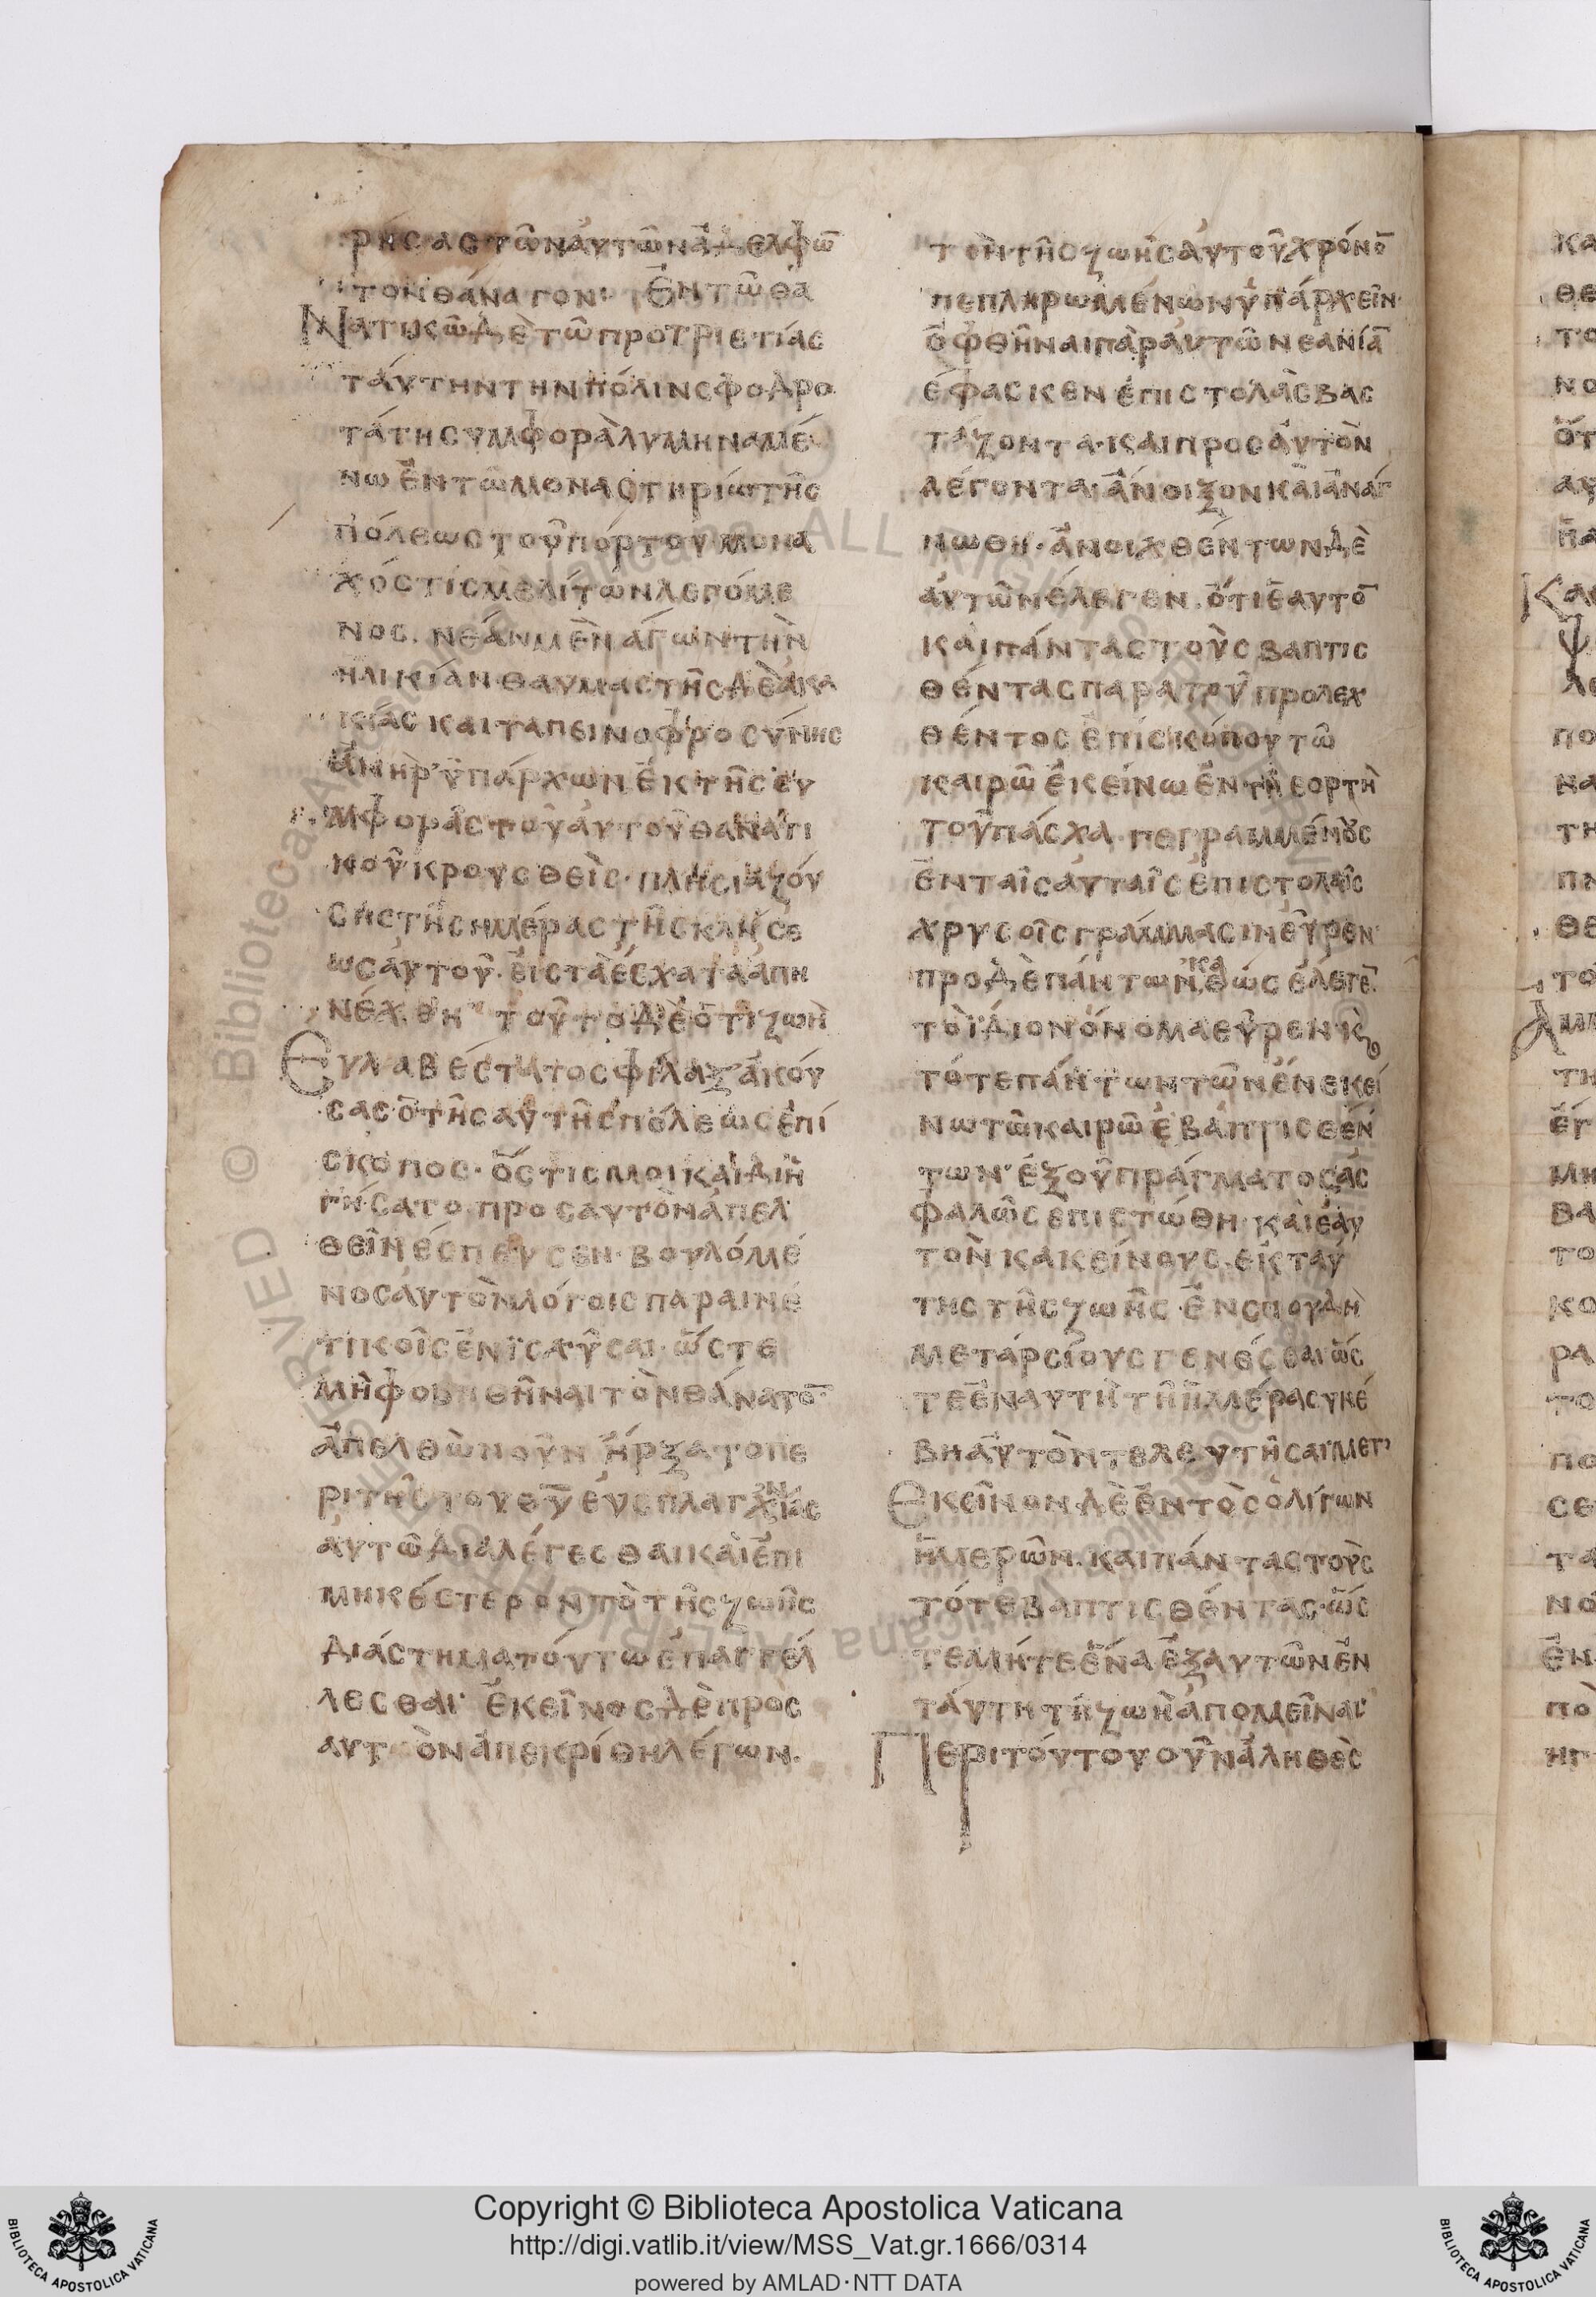 ρήσας τῶν αὐτῶν ἀδελφῶ̄
τὸν θάνατον· Ἐν τῷ θα
νατικῷ δὲ τῷ πρὸ τριετίας
ταύτην τὴν πόλιν σφοδρο
τάτη συμφορὰ λυμηναμέ
νω ἐν τῶ μοναστηρίω τῆς
πόλεως τοῦ πόρτου μονα
χός τις μελίτων λεγόμε
νος. νέαν μὲν ἄγων τὴν
ἡλικίαν θαυμαστῆς δὲ ἀκα
κίας καὶ ταπεινοφροσύνης
ἀνὴρ ὑπάρχων ἐκ τῆς συ
μφορᾶς τοῦ αὐτοῦ θανατι
κοῦ κρουσθεὶς· πλησιαζού
σης τῆς ἡμέρας τῆς κλήσε
ως αὐτοῦ. εἰς τὰ ἔσχατα ἀπη
νέχθη τοῦτο δὲ ὅτι ζωὴ
Εὐλαβέστατος φίλαξ ἀκού
σας ὁ τῆς αὐτῆς πόλεως ἐπί
σκοπος· ὅστις μοι καὶ διη
γήσατο. προς αυτὸν ἀπελ
θεῖν ἔσπευσεν· βουλόμε
νος αὐτὸν λόγοις παραινε
τικοῖς ἐνισχῦσαι· ὥστε
μὴ φοβηθῆναι τὸν θάνατο̄
ἀπελθὼν οὖν ἤρξατο πε
ρι τῆς του θυ̅ εὐσπλαγχνίας
αὐτῶ διαλέγεσθαι καὶ ἐπι
μηκέστερον τὸ τῆς ζωῆς
διάστημα τούτω ἐπαγγέλ
λεσθαι· ἐκεῖνος δὲ πρὸς
αυτὸν ἀπεκρίθη λέγων.
τὸν τῆς ζωῆς αὐτοῦ χρόνο̄
πεπληρωμένων ὑπάρχειν·
ὀφθῆναι παρ αυτῶ νεανίᾱ
ἔφασκεν ἐπιστολὰς βασ
τάζοντα· καὶ προς αὐτὸν
λέγονται ἄνοιξον καὶ ἀνάγ
νωθη· ἀνοιχθέντων δὲ
αὐτῶν ἔλεγεν. ὅτι ἑαυτο̄
καὶ πάντας τοὺς βαπτισ
θέντας παρα τοῦ προλεχ
θέντος ἐπισκόπου τῶ
καιρῶ ἐκείνω ἐν τῆ εορτὴ
τοῦ πάσχα. γεγραμμένους
ἐν ταῖς αὐταῖς ἐπιστολαῖς
χρυσοῖς γράμμασιν εὗρεν·
προ δὲ πάντων, καθώς ἔλεγε̄
τὸ ἴδιον ὄνομα εὗρεν κ(αὶ)
τότε πάντων τῶν ἐν εκεί
νω τῶ καιρῶ ἐβαπτισθέν
των· ἐξ οὗ πράγματος ἀσ
φαλῶς ἐπιστώθη· καὶ ἑαυ
τὸν κακείνους. εκ ταύ
της τῆς ζωῆς· ἐν σπουδὴ
μεταρσίους γενέσθαι ὥσ
τε ἐν αυτὴ τῆ ἡμέρα συνέ
βη αὐτὸν τελευτῆσαι· μετ
Εκεῖνον δὲ ἐντὸς ὀλίγων
ἡμερῶν. καὶ πάντας τοὺς
τότε βαπτισθέντας· ὥσ
τε μήτε ἕνα ἐξ αυτῶν ἐν
ταύτη τῆ ζωὴ ἀπομεῖναι·
Περὶ τούτου οὖν ἀληθὲς
Copyright © Biblioteca Apostolica Vaticana
http://digi.vatlib.it/view/MSS_Vat.gr.1666/0314
powered by AMLAD·NTT DATA
BIBLIOTECA APOSTOLICA VATICANA
BIBLIOTECA APOSTOLICA VATICANA